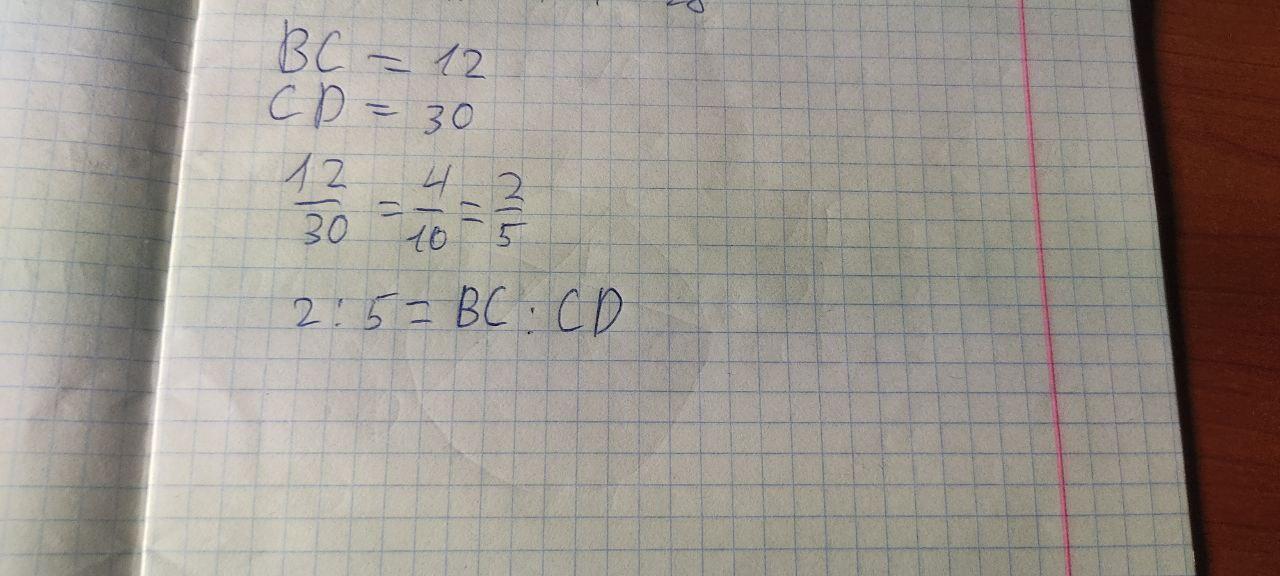 BC = 12
CD = 30
12/30 = 4/10 = 2/5
2 : 5 = BC : CD